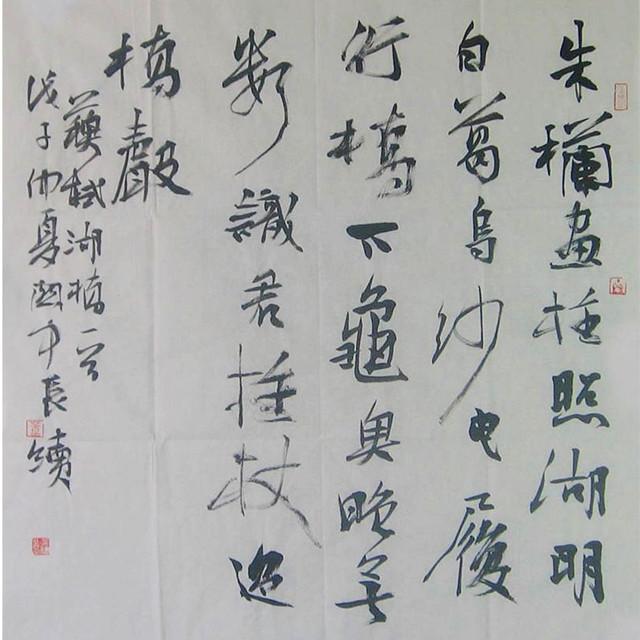 朱欄畫柱照湖明
白葛烏紗曳履
行橋下龜魚晚無
數識君拄杖過
橋聲
蘇軾湖橋一首
戊子仲夏長續